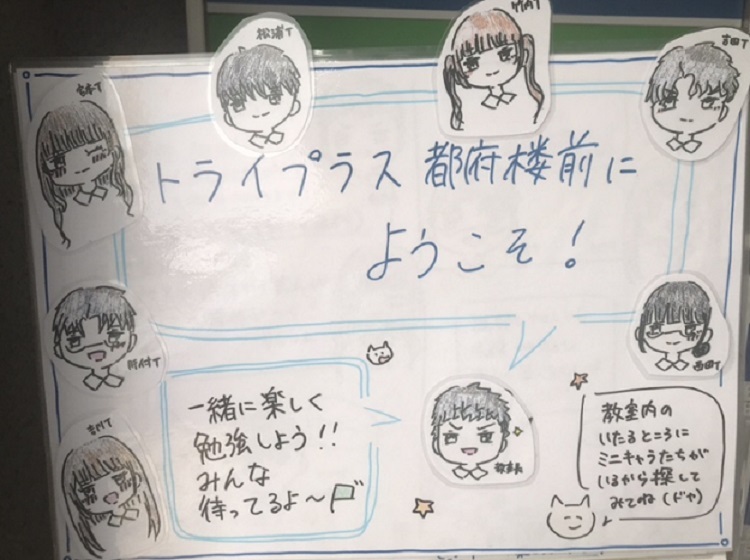 松浦T
竹内T
吉田T
トライプラス 都府楼前に
ようこそ！
西田T
一緒に楽しく
勉強しよう！！
みんな
待ってるよ～
教室内の
いたるところに
ミニキャラたちが
いるから探して
みてね（ドヤ）